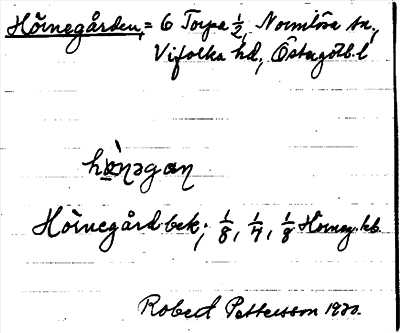 Hörnegården, = 6 Torpa 1/2, Normlösa sn,
Vifolka hd, Östergötl. l
hö̀ṇəgaṇ
Hörnegård bek; 1/8, 1/4, 1/8 Hörneg. kb.
Robert Pettersson 1930.